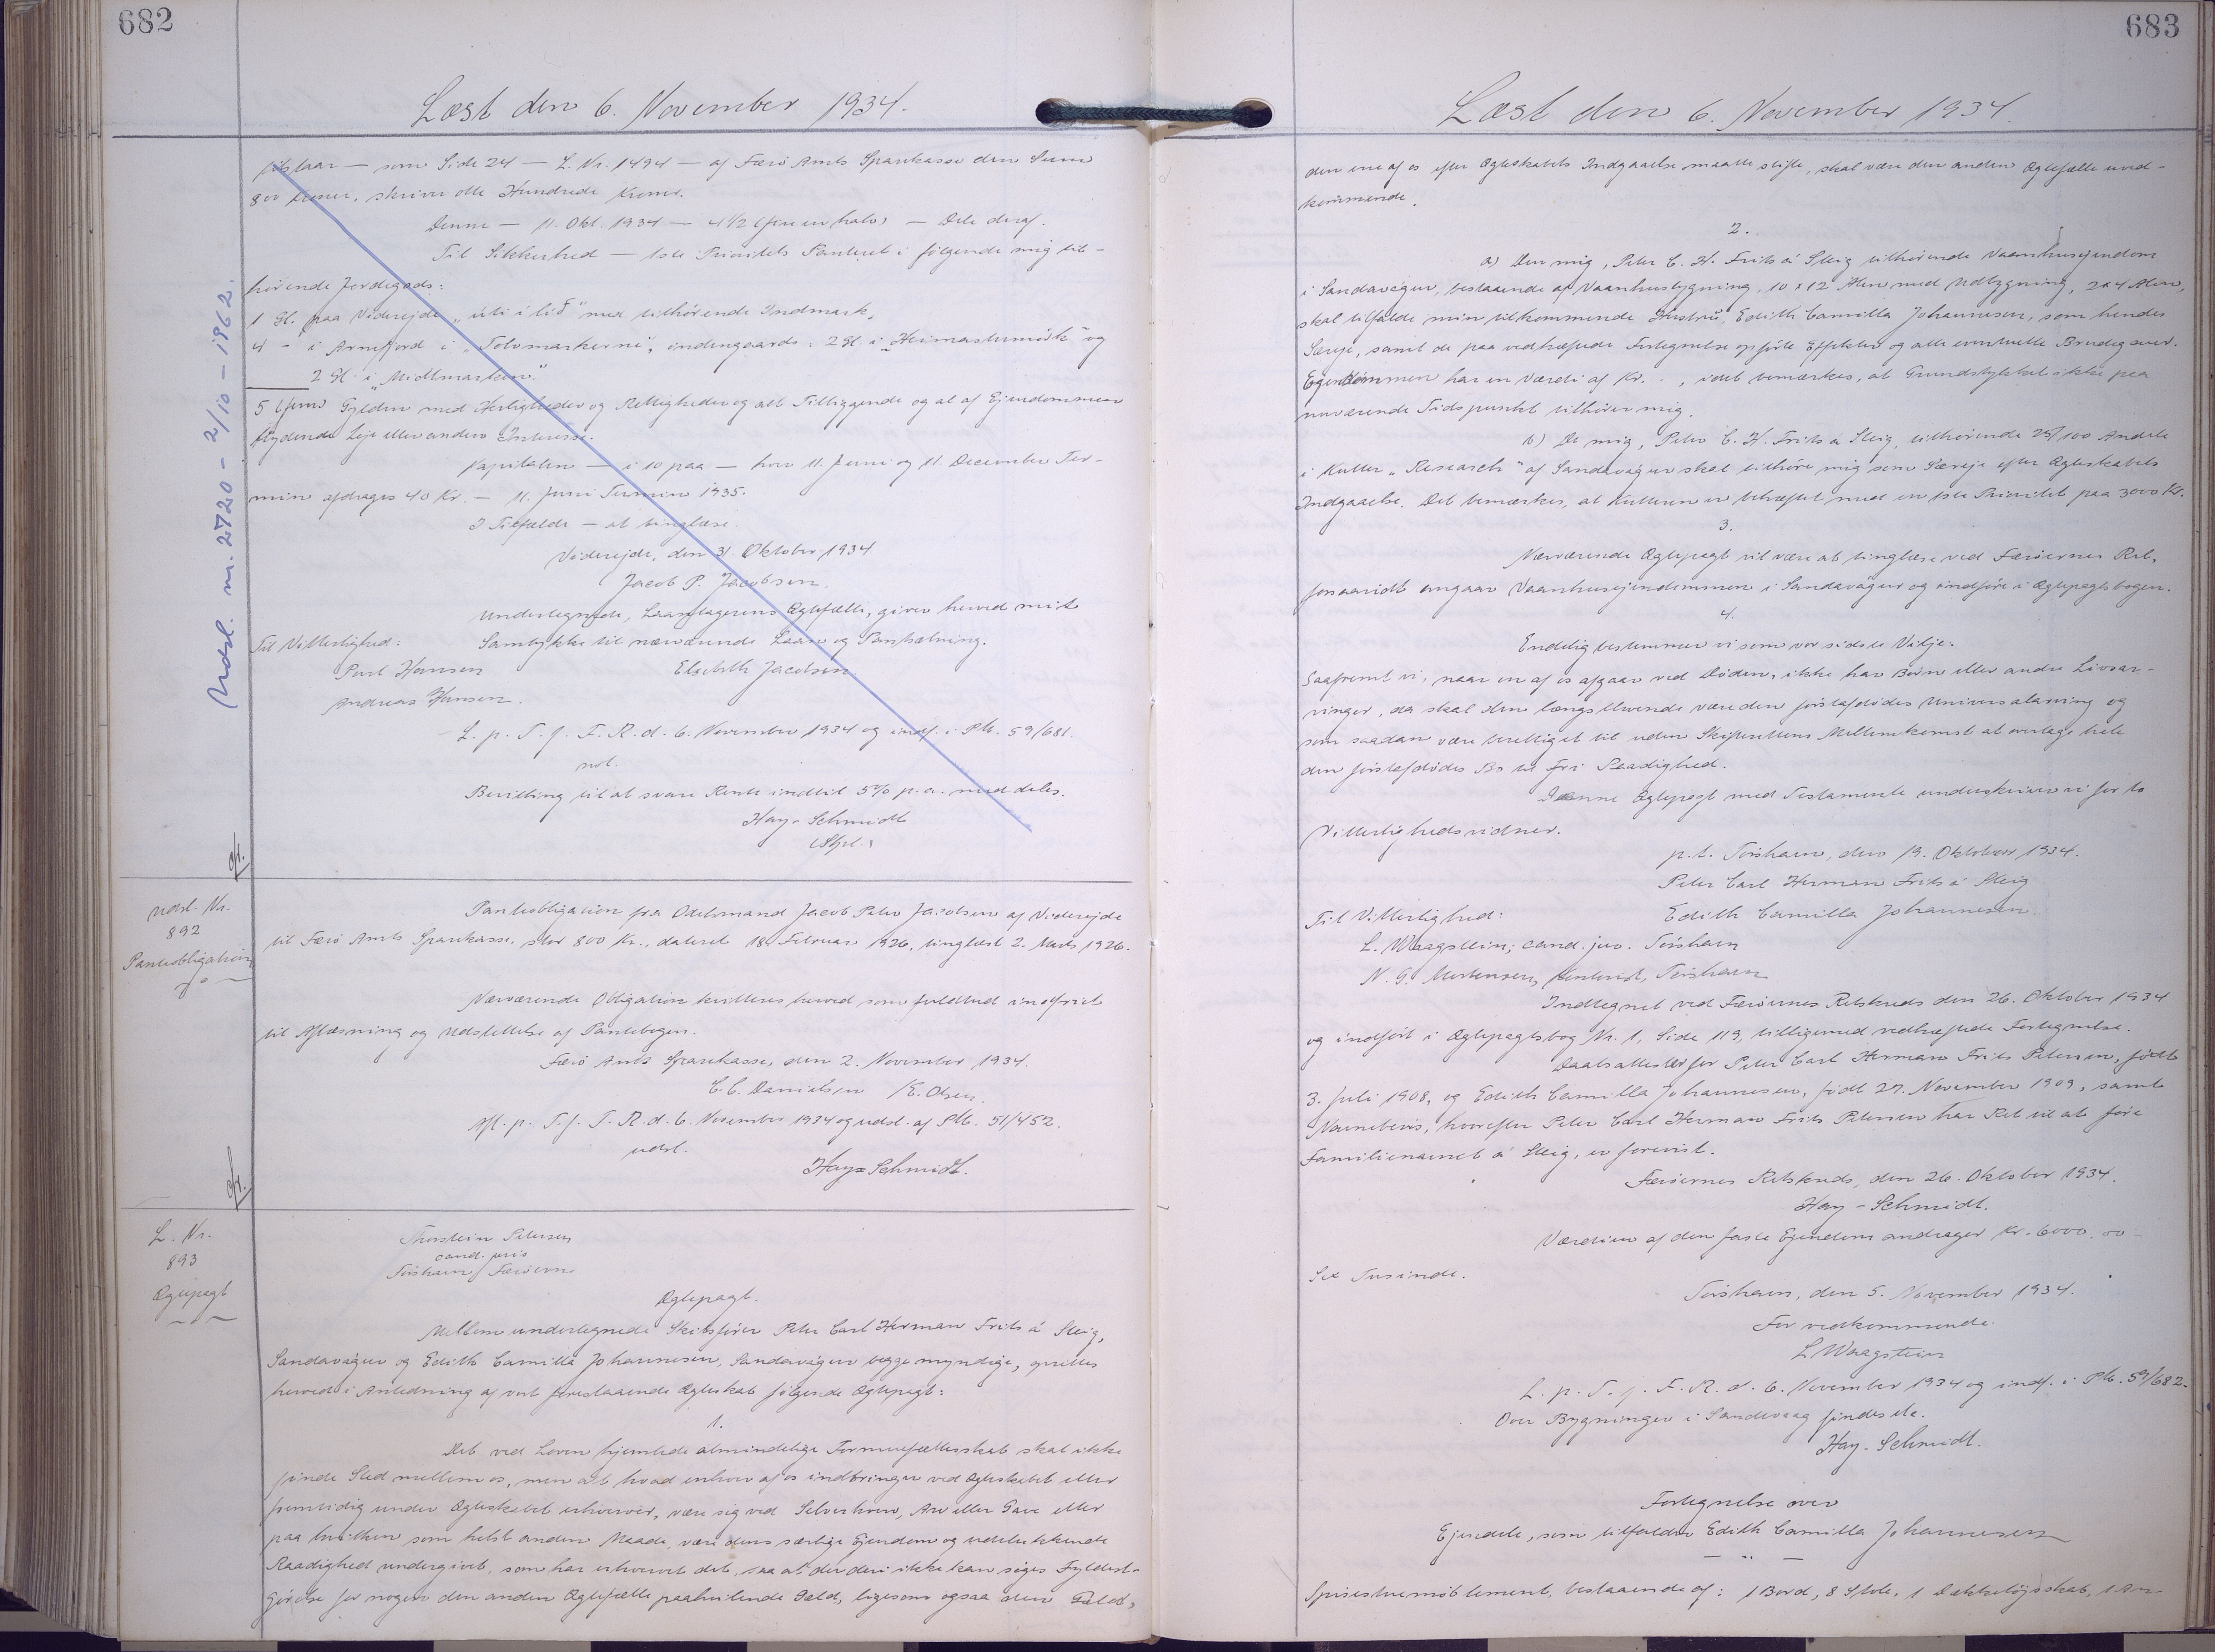 682
Læst den 6. November 1934.
Udsl. nr. 2720 - 2/10 - 1962.
tilstaar — som Side 24 — L. Nr. 1494 — af Færø Amts Sparekasse den Sum
800 Kroner, skriver otte Hundrede Kroner.
Denne — 11. Okt. 1934 — 4 1/2 (fire en halv) — Dele deraf.
Til Sikkerhed — 1ste Prioritets Panteret i følgende mig til-
hørende Jordegods:
1 Gl. paa Viderejde „úti í lið" med tilhørende Indmark,
4 - i Arnefjord i „Tolvmarkerne", indengaards: 2 Gl. i „Heimastumørk" og
2 Gl. i „Midtmarken."
5 (fem) Gylden med Herligheder og Rettigheder og alt Tilliggende og al af Ejendommen
flydende Leje eller anden Interesse.
Kapitalen — i 10 paa — hver 11. Juni og 11. December Ter-
min afdrages 40 Kr. — 11. Juni Termin 1935.
I Tilfælde — at tinglæse.
Viderejde, den 31. Oktober 1934
Jacob P. Jacobsen.
Undertegnede, Laantagerens Ægtefælle, giver herved mit
Til Vitterlighed: Samtykke til nærværende Laan og Pantsætning.
Poul Hansen Elsebeth Jacobsen.
Andreas Hansen.
L. p. T. f. F. R. d. 6. November 1934 og indf. i Pb. 59/681.
not.
Bevilling til at svare Rente indtil 5% p.a. meddeles.
Hay-Schmidt
(Sgl.)
Udsl. Nr.
892
Panteobligation
Panteobligation fra Odelsmand Jacob Peter Jacobsen af Viderejde
til Færø Amts Sparekasse, stor 800 Kr., dateret 18. Februar 1926, tinglæst 2. Marts 1926.
Nærværende Obligation kvitteres herved som fuldtud indfriet
til Aflæsning og Udslettelse af Pantebogen.
Færø Amts Sparekasse, den 2. November 1934.
C. C. Danielsen /E. Olsen.
Afl. p. T. f. F. R. d. 6. November 1934 og udsl. af Pb. 51/452.
udsl.
Hay-Schmidt.
L. Nr.
893
Ægtepagt
Thorstein Petersen
cand. juris
Torshavn, Færøerne
Ægtepagt.
Mellem undertegnede Skibsfører Peter Carl Herman Frits á Steig,
Sandavágur og Edith Camilla Johannesen, Sandavágur begge myndige, oprettes
herved i Anledning af vort forestaaende Ægteskab følgende Ægtepagt:
1.
Det ved Loven hjemlede almindelige Formuefællesskab skal ikke
finde Sted mellem os, men alt hvad enhver af os indbringer ved Ægteskabet eller
fremtidig under Ægteskabet erhverver, være sig ved Selverhverv, Arv eller Gave eller
paa hvilken som helst anden Maade, være dens særlige Ejendom og udelukkende
Raadighed undergivet, som har erhvervet det, saa at der deri ikke kan søges Fyldest-
gørelse for nogen den anden Ægtefælle paahvilende Gæld, ligesom ogsaa den Gæld,
683
Læst den 6. November 1934.
den ene af os efter Ægteskabets Indgaaelse maatte stifte, skal være den anden Ægtefælle uved-
kommende.
2.
a) Den mig, Peter C. H. Frits á Steig tilhørende Vaanhusejendom
i Sandavágur, bestaaende af Vaanhusbygning, 10 x 12 Alen med Udbygning, 2 x 4 Alen,
skal tilfalde min tilkommende Hustru, Edith Camilla Johannesen, som hendes
Særeje, samt de paa vedhæftede Fortegnelse opførte Effekter og alle eventuelle Brudegaver.
Ejendommen har en Værdi af Kr. . , idet bemærkes, at Grundstykket ikke paa
nuværende Tidspunkt tilhører mig.
b) De mig, Peter C. H. Frits á Steig, tilhørende 25/100 Andele
i Kutter „Research" af Sandavágur skal tilhøre mig som Særeje efter Ægteskabets
Indgaaelse. Det bemærkes, at Kutteren er behæftet med en 1ste Prioritet paa 3000 Kr.
3.
Nærværende Ægtepagt vil være at tinglæse ved Færøernes Ret,
forsaavidt angaar Vaanhusejendommen i Sandavágur og indføre i Ægtepagtsbogen.
4.
Endelig bestemmer vi som vor sidste Vilje:
Saafremt vi, naar en af os afgaar ved Døden, ikke har Børn eller andre Livsar-
vinger, da skal den længstlevende være den førstafdødes Universalarving og
som saadan være berettiget til uden Skifterettens Mellemkomst at overtage hele
den førstafdødes Bo til fri Raadighed.
Denne Ægtepagt med Testamente underskriver vi for to
Vitterlighedsvidner.
p.t. Torshavn, den 19. Oktober 1934.
Peter Carl Herman Frits á Steig
Til Vitterlighed: Edith Camilla Johannesen.
L. Waagstein, cand. juv. Torshavn
N. G. Mortensen, Torshavn
Indtegnet ved Færøernes Retskreds den 26. Oktober 1934
og indført i Ægtepagtsbog Nr. 1, Side 119, tilligemed vedhæftede Fortegnelse.
Daabsattester for Peter Carl Herman Frits Petersen, født
3. Juli 1908, og Edith Camilla Johannesen, født 27. November 1909, samt
Navnebevis, hvorefter Peter Carl Herman Frits Petersen har Ret til at føre
Familienavnet á Steig, er forevist.
Færøernes Retskreds, den 26. Oktober 1934.
Hay-Schmidt.
Værdien af den faste Ejendom andrager Kr. 6000.00 -
Sex Tusinde.
Torshavn, den 5. November 1934.
For vedkommende.
L Waagstein
L. p. T. f. F. R. d. 6. November 1934 og indf. i Pb. 59/682.
Over Bygninger i Sandevaag findes
Hay-Schmidt.
Fortegnelse over
Ejendele, som tilfalder Edith Camilla Johannesen
Spisestuemøblement, bestaaende af: 1 Bord, 8 Stole, 1 Dækketøjsskab, 1 An-